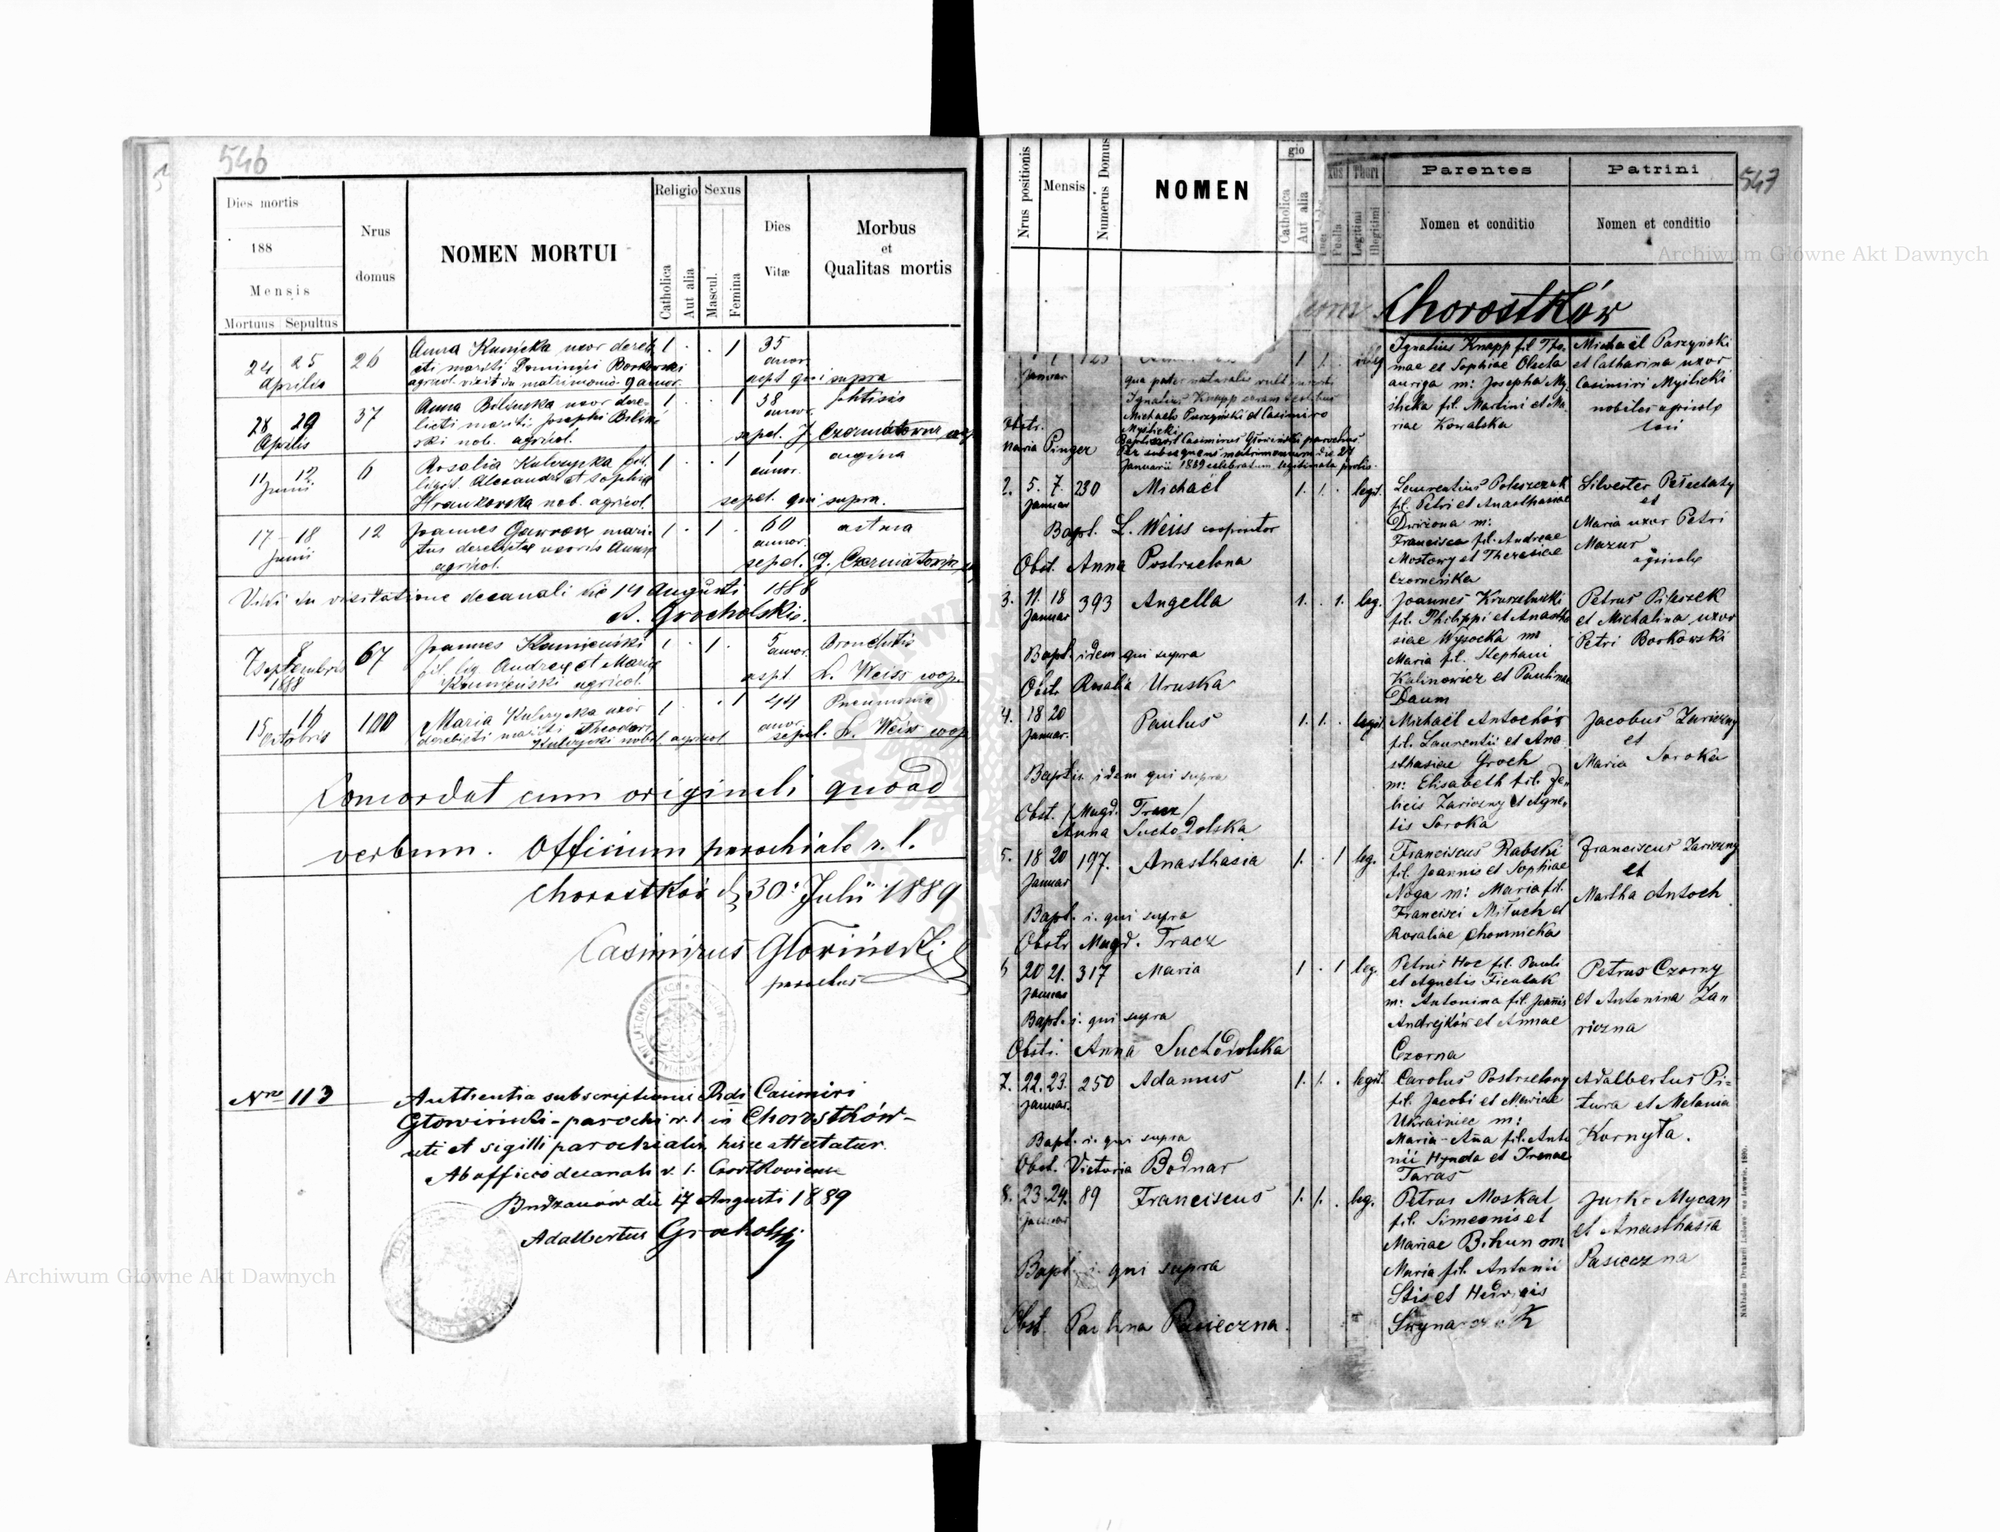 546
Dies mortis
188
Mensis
Mortuus Sepultus
Nrus domus
NOMEN MORTUI
Religio
Catholica
Aut alia
Sexus
Mascul.
Femina
Dies Vitæ
Morbus
et
Qualitas mortis
24 25
Aprilis
26
Anna Kunicka uxor derelic
ti mariti Dominici Borkowski
1 . . 1
35
annor.
sept qui supra
28 29
Aprilis
37
Anna Bilinska uxor dere-
licti mariti Josephi Bilin
ski nob. agricol.
1 . . 1
38
annor.
phtisis
sepel. J. Czerniatowicz
11 12
Junii
6
Rosalia Kulczycka fil.
legit. Alexandri et Sophia
Hrankowska nob. agricol.
1 . . 1
1
annor.
angina
sepel. qui supra.
17 - 18
Junii
12
Joannes Gawron mari-
tus derelictæ uxoris Annæ
agricol.
1 . 1 .
60
annor.
astma
sepel. J. Czerniatowicz
Vidi in visitatione decanali die 14 Augusti 1888
A. Grocholski.
7 8
Septembris
1888
67
Joannes Kamieński
fil. lig. Andreæ et Mariæ
Kamieński agricol.
1 . 1 .
5
annor.
Bronchitis
sept L. Weiss coop.
15 16
Octobris
100
Maria Kulczycka uxor
derelicti mariti Theodori
Kulczycki nobil. agricol
1 . . 1
44
annor.
Pneumonia
sepel. L. Weiss coop
Concordat cum originali quoad
verbum. Officium parochiale r. l.
Chorostków d. 30. Julii 1889
Casimirus Głowiński
parochus
Nro 113
Authentia subscriptionis Rndi Casimiri
Głowiński - parochi r. l. in Chorostków -
uti et sigilli parochialis hisce attestatur.
Ab officio decanali r. l. Czortkoviense
Budzanów die 17 Augusti 1889
Adalbertus Grocholski
547
Nrus positionis
Mensis
Numerus Domus
NOMEN
gio
Catholica
Aut alia
xus
Puella
Thori
Legitimi
Illegitimi
Parentes
Nomen et conditio
Patrini
Nomen et conditio
Chorostków
Januar
qua pater naturalis vult
Ignatius Knapp coram testibus
Michaele Parzyński et Casimiro
Myślicki
Obstr.
Maria Pinger
Baptisavit Casimirus Głowiński parochus
Per subsequens matrimonium die 27
Januarii 1889 celebratum legitimata proles.
Ignatius Knapp fil Tho-
mae et Sophiae Olecta
auriga m: Josepha My-
ślicka fil. Martini et Ma
riae Kowalska
Michaël Parzyński
et Catharina uxor
Casimiri Myślicki
nobiles agricolæ
loci
2. 5. 7. 230 Michaël 1. 1. . legit.
Januar
Bapt. L. Weiss cooperator
Obst. Anna Postrzelona
Laurentius Poleszczuk
fil. Petri et Anasthasiae
Dwirzona m:
Francisca fil. Andreae
Mostowy et Theresiae
Czorneńka
Silvester Pełechaty
et
Maria uxor Petri
Mazur
agricolæ
3. 11. 18 393 Angella 1. . 1. leg.
Januar
Bapt. idem qui supra
Obst. Rosalia Uruska
Joannes Kruszelnicki
fil. Philippi et Anastha
siae Wysocka m:
Maria fil. Stephani
Kalinowicz et Paulinae
Daum
Petrus Pileszek
et Michalina uxor
Petri Borkowski
4. 18 20 Paulus 1. 1. . legit.
Januar.
Bapt. idem qui supra
Obst. /Magd. Tracz/
Anna Suchodolska
Michaël Antochów
fil. Laurentii et Ana
sthasiae Groch
m: Elisabeth fil. Fe-
licis Zariczny et Agne-
tis Soroka
Jacobus Zariczny
et
Maria Soroka
5. 18 20 197. Anasthasia 1. . 1 leg.
Januar
Bapt. i. qui supra
Obstr Magd. Tracz
Franciscus Rabski
fil. Joannis et Sophiae
Noga m: Maria fil.
Francisci Miłuch et
Rosaliae Chomnicka
Franciscus Zariczny
et
Martha Antoch
6 20 21. 317 Maria 1 . 1 leg.
Januar
Bapt. i. qui supra
Obsti. Anna Suchodolska
Petrus Hoc fil. Pauli
et Agnetis Ficalak
m: Antonina fil. Joannis
Andrejków et Annae
Czorna
Petrus Czorny
et Antonina Za-
riczna
7. 22. 23. 250 Adamus 1. 1. . legit.
Januar.
Bapt. i. qui supra
Obst. Victoria Bodnar
Carolus Postrzelony
fil. Jacobi et Mariae
Ukrainiec m:
Maria-Anna fil. Anto
nii Hynda et Irenae
Taras
Adalbertus Pi-
tura et Melania
Kornyta.
8. 23. 24. 89 Franciscus 1. 1. . leg.
Januar
Bapt. i. qui supra
Obst. Paulina Pasieczna.
Petrus Moskal
fil. Simeonis et
Mariae Bihun m:
Maria fil. Antonii
Stis et Hedvigis
Jurko Mycan
et Anasthasia
Pasieczna
Archiwum Główne Akt Dawnych
Archiwum Główne Akt Dawnych